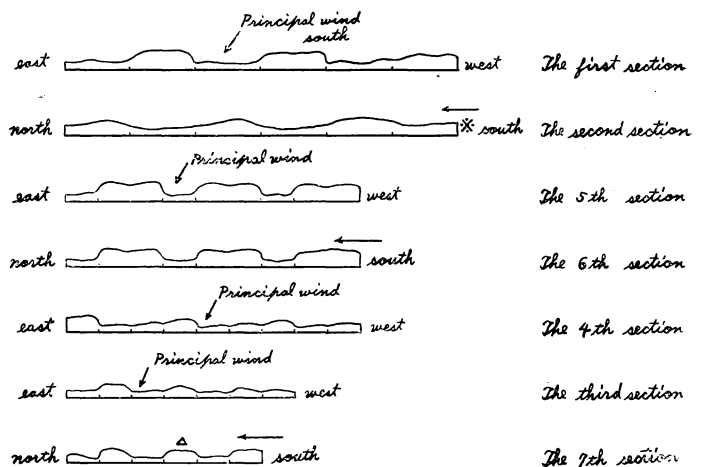 Principal wind
south
east west The first section
north ※ south The second section
Principal wind
east west The 5th section
north south The 6th section
Principal wind
east west The 4th section
Principal wind
east west The third section
north south The 7th section